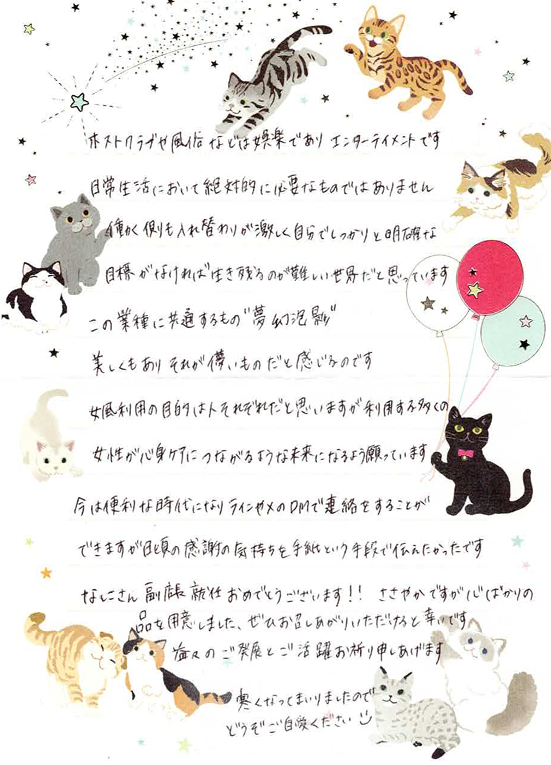 ホストクラブや風俗などは娯楽であり エンターテイメントです
日常生活において絶対的に必要なものではありません
働かく側りも入れ替わりが激しく自分でしっかりと明確な
目標がなければ生き残るのが難しい世界だと思っています
この業種に共通するもの"夢幻泡影"
美しくもあり それが儚いものだと感じるのです
女風利用の目的は人それぞれだと思いますが利用する多くの
女性が心身ケアにつながるような未来になるよう願っています
今は便利な時代になりラインやXのDMで連絡をすることが
できますが日頃の感謝の気持ちを手紙という手段で伝えたかったです
なしこさん 副店長 就任 おめでとうございます!! ささやかですが心ばかりの
品を用意しました、ぜひお召しあがりいただけると幸いです
益々の ご発展とご活躍お祈り申しあげます
寒くなってまいりましたので
どうぞご自愛ください